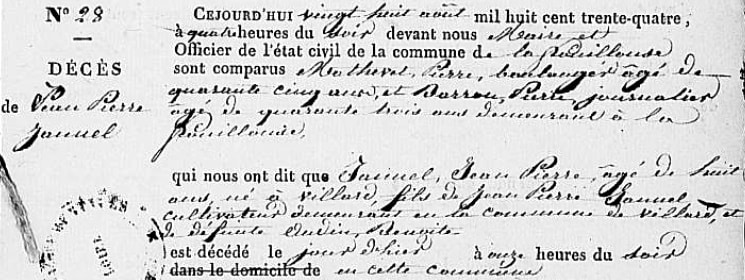 N° 28
CEJOURD'HUI vingt huit août mil huit cent trente-quatre,
à quatre heures du soir devant nous Maire et
Officier de l'état civil de la commune de la fouillouse
DÉCÈS
sont comparus Mathevet, Pierre, boulanger âgé de
quarante cinq ans, et Barrou, Pierre, journalier
de Jean Pierre
Januel
âgé de quarante trois ans demeurant à la
fouillouse,
qui nous ont dit que Januel, Jean Pierre, âgé de huit
ans, né à villard, fils de Jean Pierre Januel,
cultivateur demeurant en la commune de villard, et
de défunte Benoite
est décédé le jour d'hier à onze heures du soir
dans le domicile de en cette commune